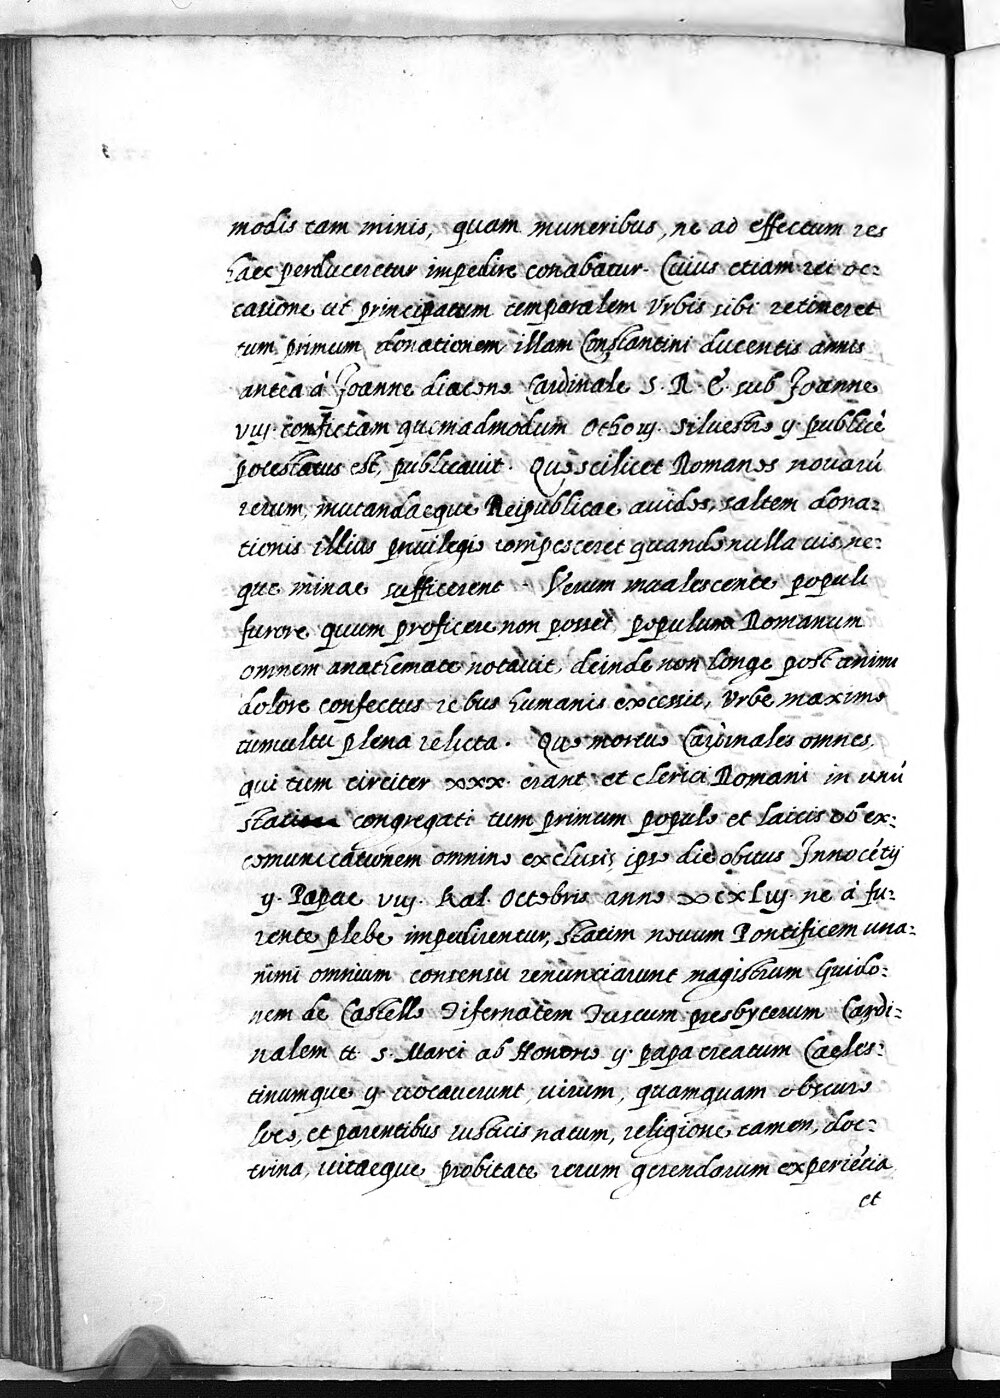 modis tam minis, quam muneribus, ne ad effectum res
haec perduceretur impedire conabatur. Cuius etiam rei oc=
casione ut principatum temporalem Urbis sibi retineret
tum primum donationem illam Constantini ducentis annis
antea à Joanne diacono Cardinale S. R. E. sub Joanne
viij. confictam quemadmodum Otho iij. Silvestro ij. publicè
potestatus est, publicavit. Quo scilicet Romanos novarū
rerum, mutandaeque Reipublicae avidos, saltem dona=
tionis illius privilegio compesceret quando nulla vis, ne=
que minae sufficerent. Verum invalescente populi
furore quum proficere non posset, populum Romanum
omnem anathemate notavit, deinde non longe post animi
dolore confectus rebus humanis excessit, Urbe maximo
tumultu plena relicta. Quo mortuo Cardinales omnes,
qui tum circiter xxx. erant et clerici Romani in unū
congregati tum primum populo et laicis ob ex=
comunicationem omnino exclusis, ipso die obitus Innocētij
ij. Papae viij. Kal. Octobris anno ∞cxliij. ne à fu=
rente plebe impedirentur, statim novum Pontificem una=
nimi omnium consensu renunxiarunt magistrum Guido=
nem de Castello Tifernatem Tuscum presbyterum Cardi=
nalem tt. S. Marci ab Honorio ij. papa creatum Caeles=
tinumque ij. vocaverunt, virum, quamquam obscuro
loco, et parentibus rusticis natum, religione tamen, doc=
trina, vitaeque probitate rerum gerendarum experiētia
et